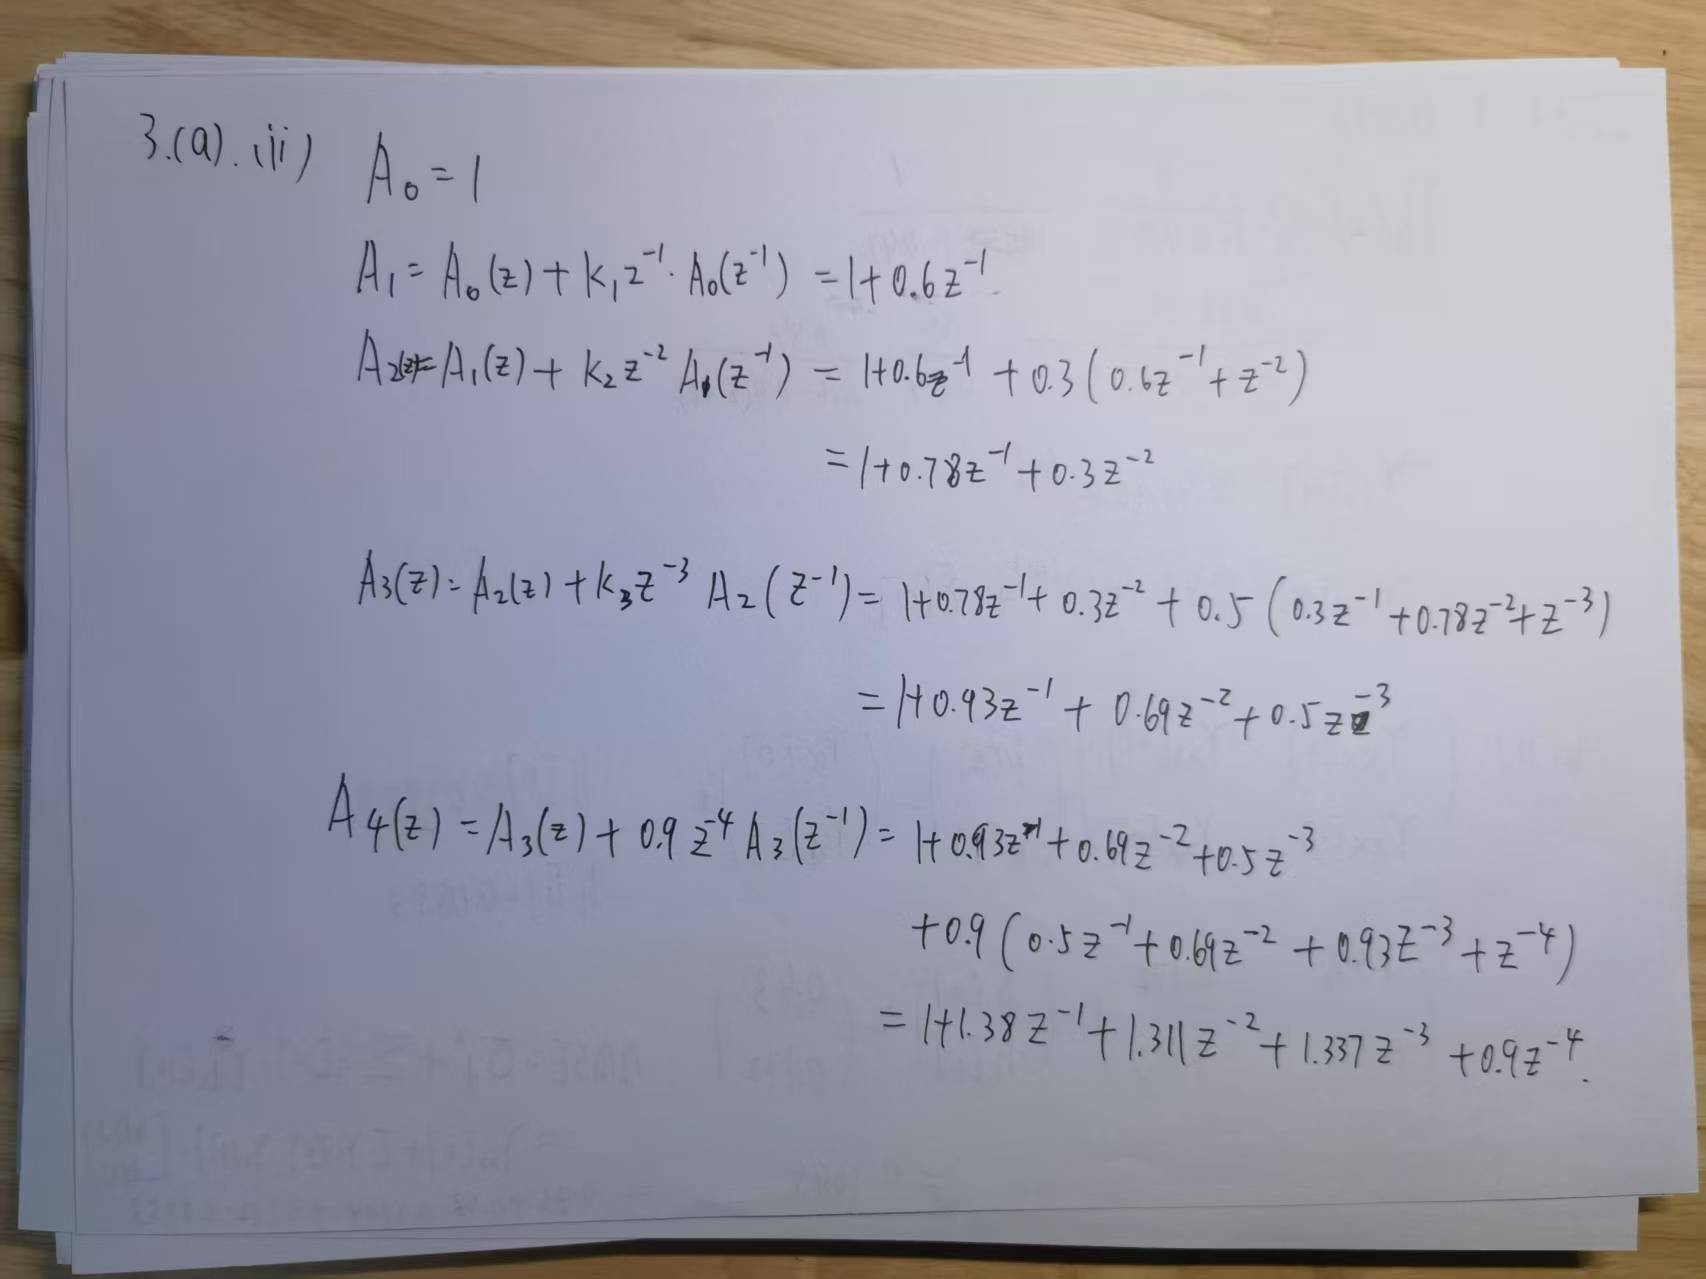 3.(a).(ii) A₀ = 1
A₁ = A₀(z) + k₁z⁻¹·A₀(z⁻¹) = 1+0.6z⁻¹
A₂(z) = A₁(z) + k₂z⁻² A₁(z⁻¹) = 1+0.6z⁻¹ + 0.3(0.6z⁻¹+z⁻²)
= 1+0.78z⁻¹+0.3z⁻²
A₃(z) = A₂(z) + k₃z⁻³ A₂(z⁻¹) = 1+0.78z⁻¹+0.3z⁻²+0.5(0.3z⁻¹+0.78z⁻²+z⁻³)
= 1+0.93z⁻¹+0.69z⁻²+0.5z⁻³
A₄(z) = A₃(z) + 0.9z⁻⁴A₃(z⁻¹) = 1+0.93z⁻¹+0.69z⁻²+0.5z⁻³
+0.9(0.5z⁻¹+0.69z⁻²+0.93z⁻³+z⁻⁴)
= 1+1.38z⁻¹+1.311z⁻²+1.337z⁻³+0.9z⁻⁴.